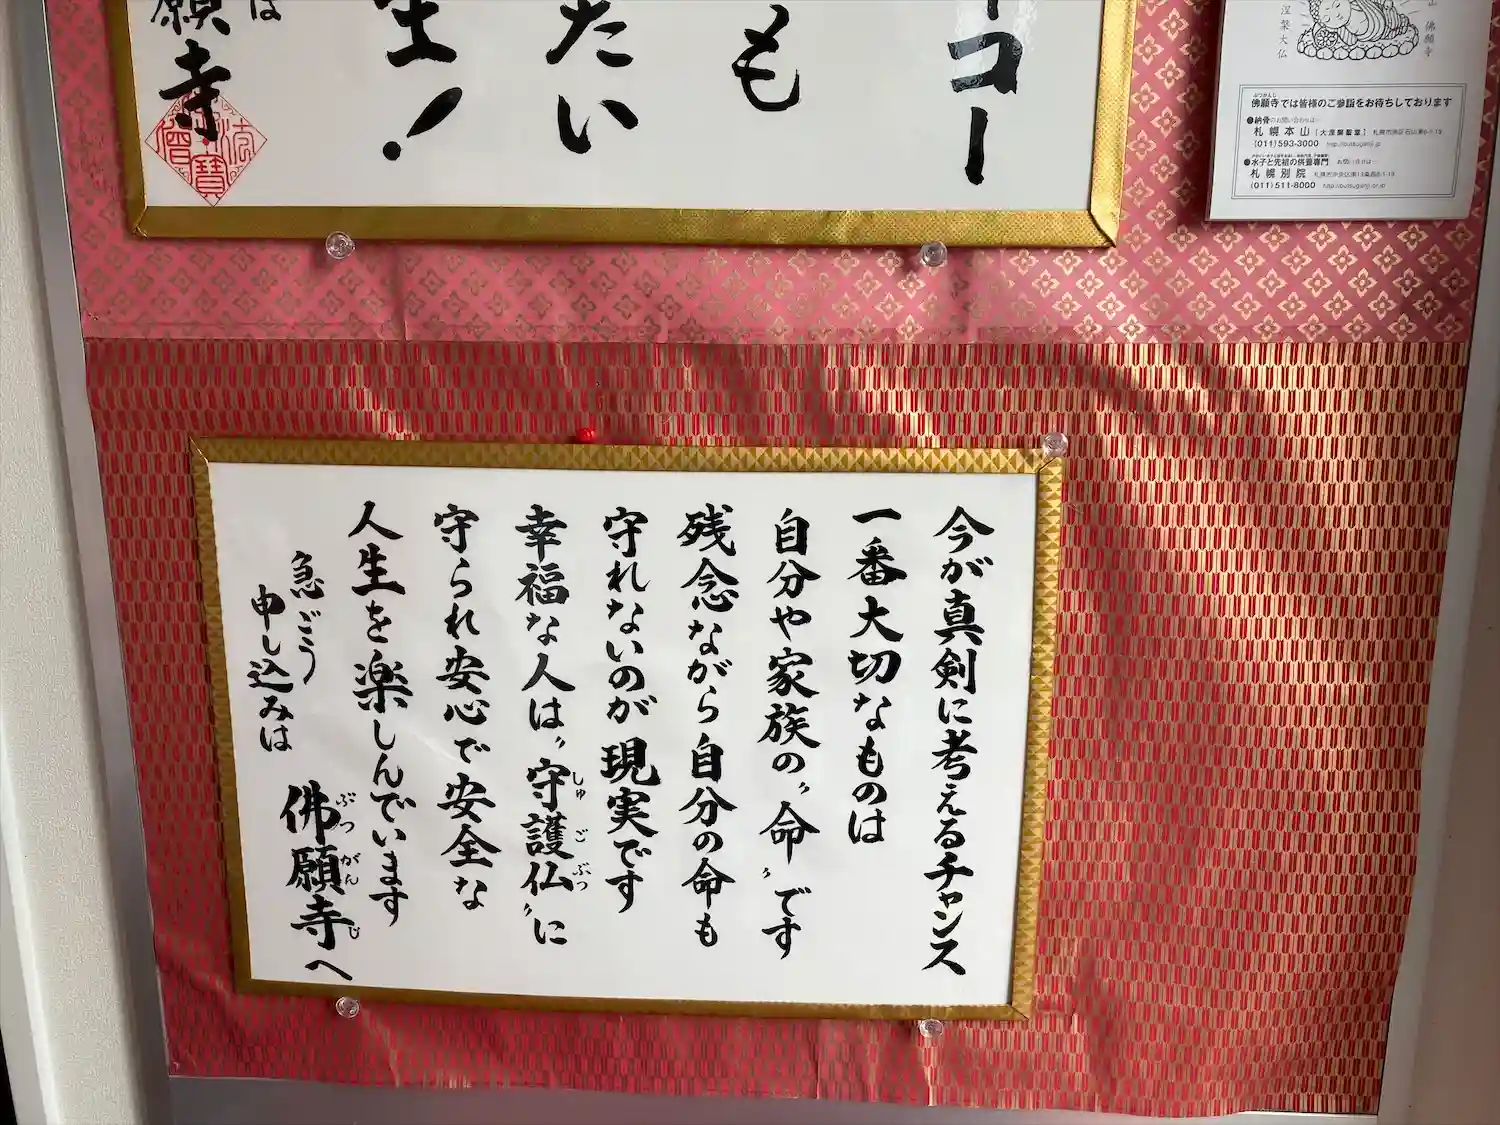 コー
も
たい
生！
は
願寺
法
僧
寶
涅槃大仏
山 佛願寺
ぶつがんじ
佛願寺では皆様のご参詣をお待ちしております
●納骨のお問い合わせは…
札幌本山［大涅槃聖堂］
(011)593-3000 http://butsuganji.jp
●水子と先祖の供養専門 お問い合せは…
札幌別院
(011)511-8000 http://butsuganji.or.jp
今が真剣に考えるチャンス
一番大切なものは
自分や家族の〝命〟です
残念ながら自分の命も
守れないのが現実です
幸福な人は〝守護仏〟に
しゅごぶつ
守られ安心で安全な
人生を楽しんでいます
急ごう
申し込みは
佛願寺へ
ぶつがんじ